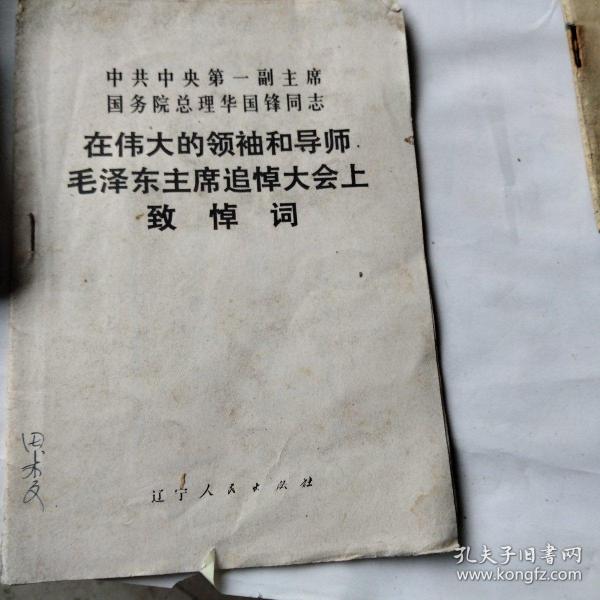 中共中央第一副主席
国务院总理华国锋同志
在伟大的领袖和导师
毛泽东主席追悼大会上
致悼词
辽宁人民出版社
孔夫子旧书网
www.kongfz.com